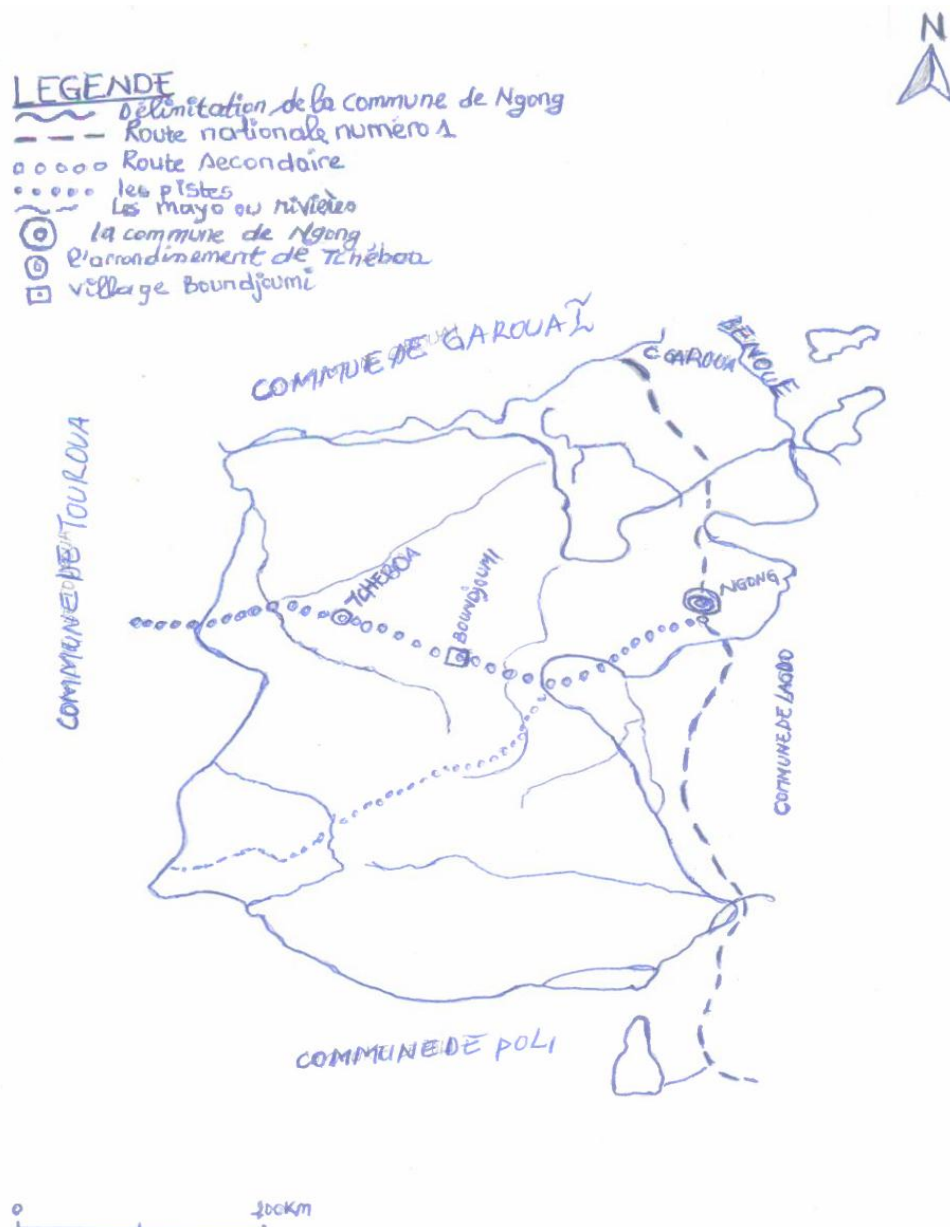 N
LEGENDE
Délimitation de la commune de Ngong
Route nationale numéro 1
Route secondaire
les pistes
Les mayo ou rivières
la commune de Ngong
l'arrondinement de Tchéboa
village Boundjoumi
COMMUE DE GAROUA I
C GAROUA
BENOUE
COMMUNE DE TOUROUA
TCHEBOA
BOUNDJOUMI
NGONG
COMMUNE DE LAGDO
COMMUNE DE POLI
0
100KM